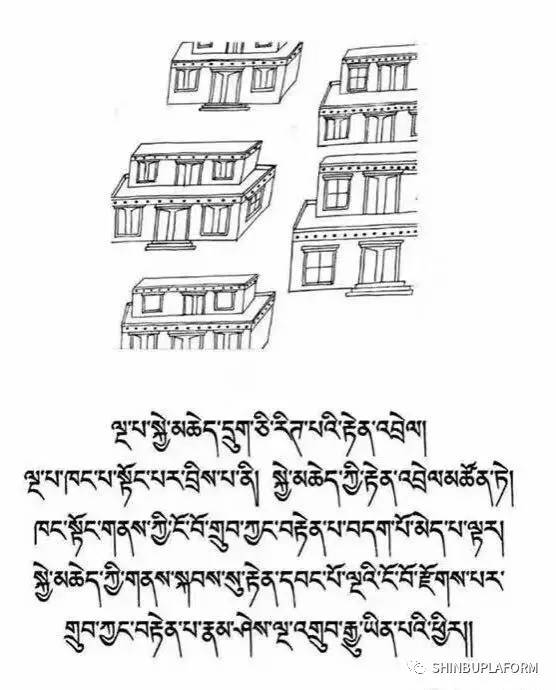 ལྔ་པ་སྐྱེ་མཆེད་དྲུག་ཅི་རིཊ་པའི་རྟེན་འབྲེལ།
ལྔ་པ་ཁང་པ་སྟོང་པར་བྲིས་པ་ནི། སྐྱེ་མཆེད་ཀྱི་རྟེན་འབྲེལ་མཚོན་ཏེ།
ཁང་སྟོང་གནས་ཀྱི་ངོ་བོ་གྲུབ་ཀྱང་བརྟེན་པ་བདག་པོ་མེད་པ་ལྟར།
སྐྱེ་མཆེད་ཀྱི་གནས་སྐབས་སུ་རྟེན་དབང་པོ་ལྔའི་ངོ་བོ་རྫོགས་པར་
གྲུབ་ཀྱང་བརྟེན་པ་རྣམ་ཤེས་ལྔ་འགྲུབ་རྒྱུ་ཡིན་པའི་ཕྱིར།།
SHINBUPLAFORM